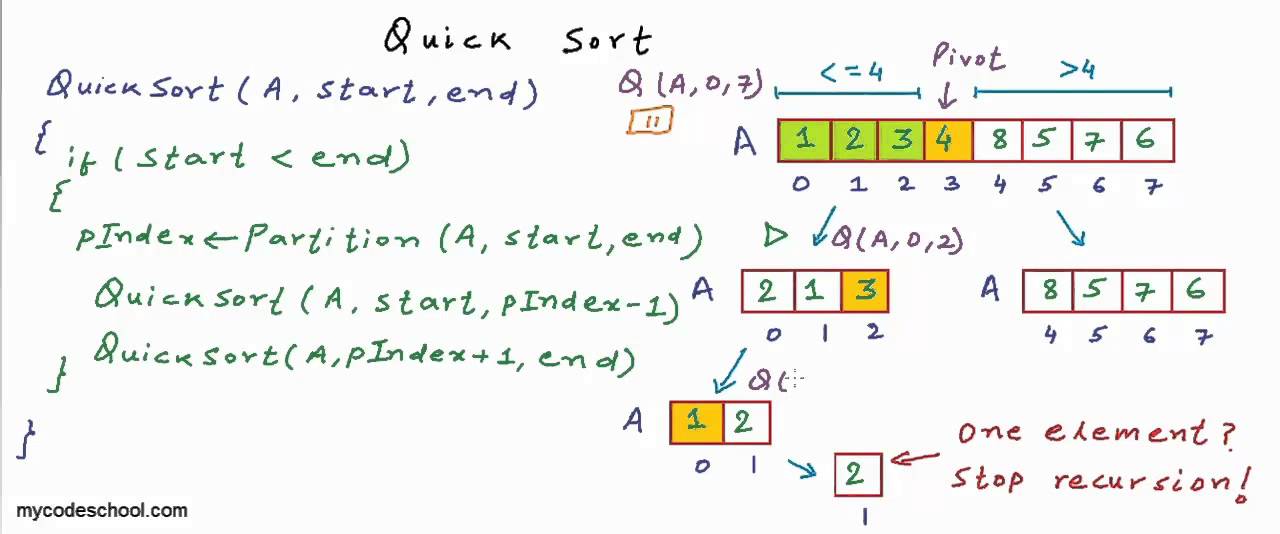 Quick Sort
QuickSort(A, start, end)
{
if (start < end)
{
pIndex ← Partition (A, start, end)
QuickSort (A, start, pIndex-1)
QuickSort(A, pIndex+1, end)
}
}
mycodeschool.com
Q (A, 0, 7)
<=4
Pivot
>4
A 1 2 3 4 8 5 7 6
0 1 2 3 4 5 6 7
Q(A, 0, 2)
A 2 1 3
0 1 2
A 8 5 7 6
4 5 6 7
Q(
A 1 2
0 1
2
1
One element?
Stop recursion!